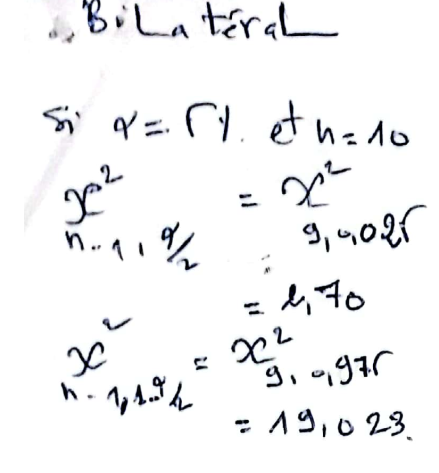 Bilatéral
Si α = 5%. et n = 10
x²_{n-1, α/2} = x²_{9, 0,025}
= 2,70
x²_{n-1, 1-α/2} = x²_{9, 0,975}
= 19,023.